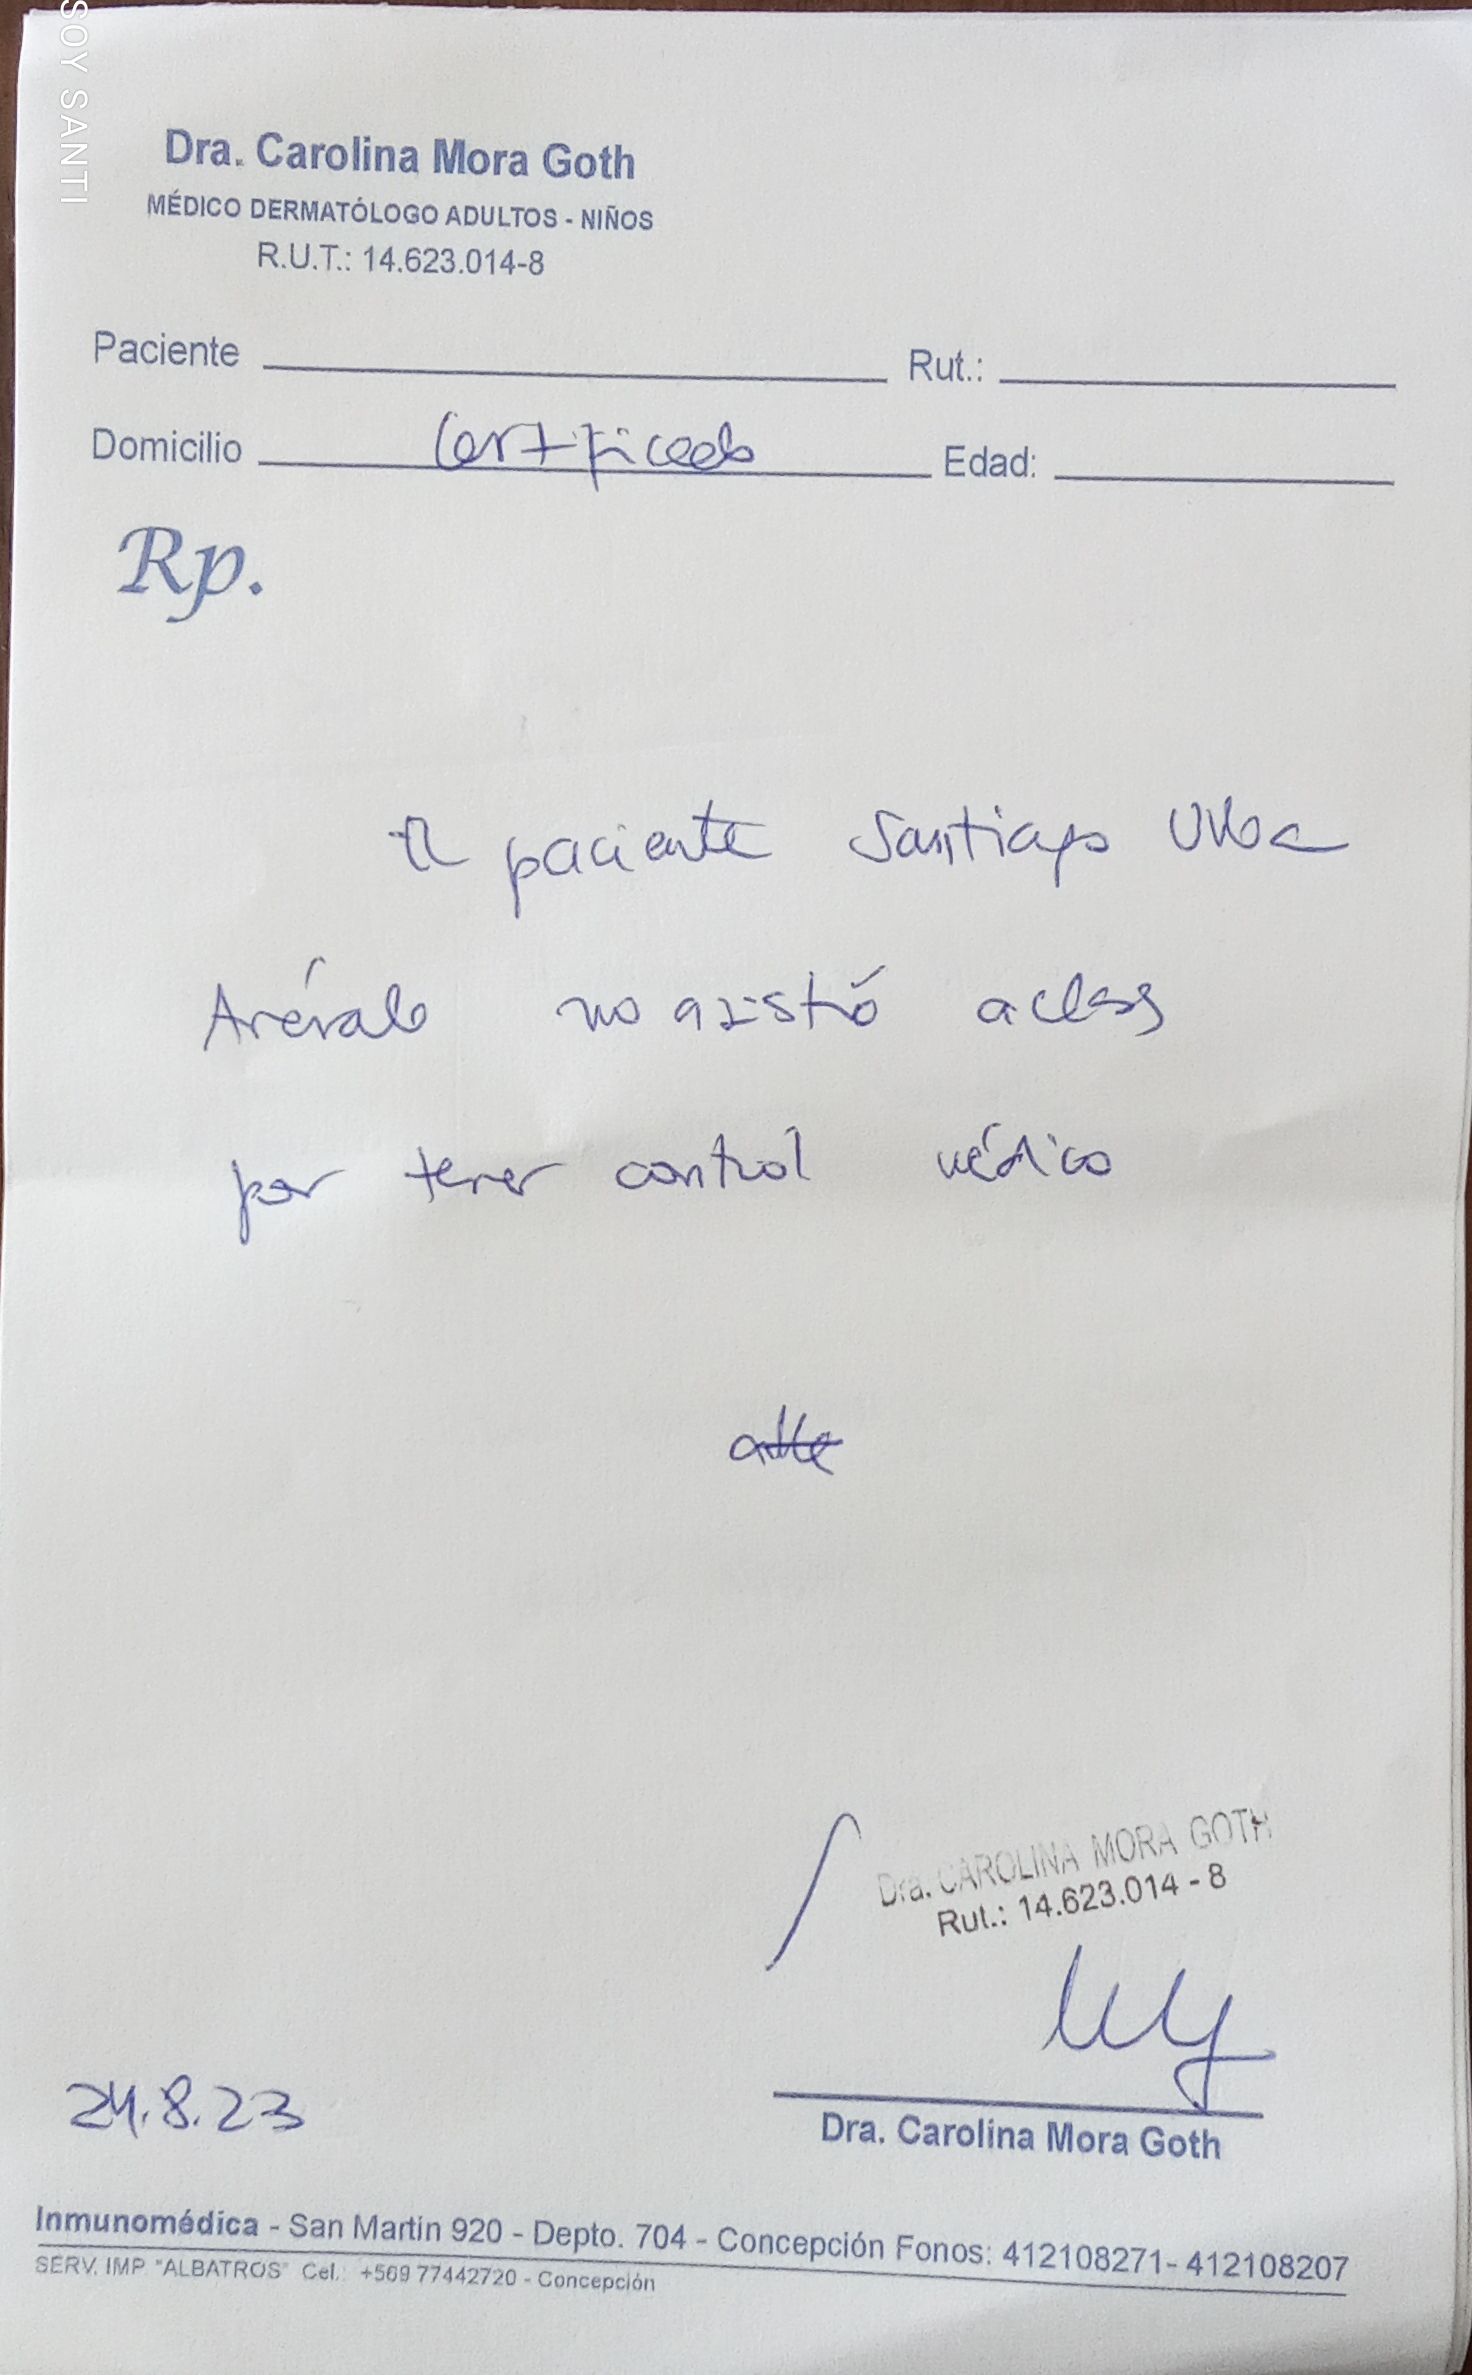 SOY SANTI
Dra. Carolina Mora Goth
MÉDICO DERMATÓLOGO ADULTOS - NIÑOS
R.U.T.: 14.623.014-8
Paciente Rut.:
Domicilio Certificado Edad:
Rp.
El paciente Santiago
Arévalo no asistió a clases
por tener control médico
atte
Dra. CAROLINA MORA GOTH
Rut.: 14.623.014 - 8
24.8.23
Dra. Carolina Mora Goth
Inmunomédica - San Martin 920 - Depto. 704 - Concepción Fonos: 412108271- 412108207
SERV. IMP "ALBATROS" Cel.: +569 77442720 - Concepción